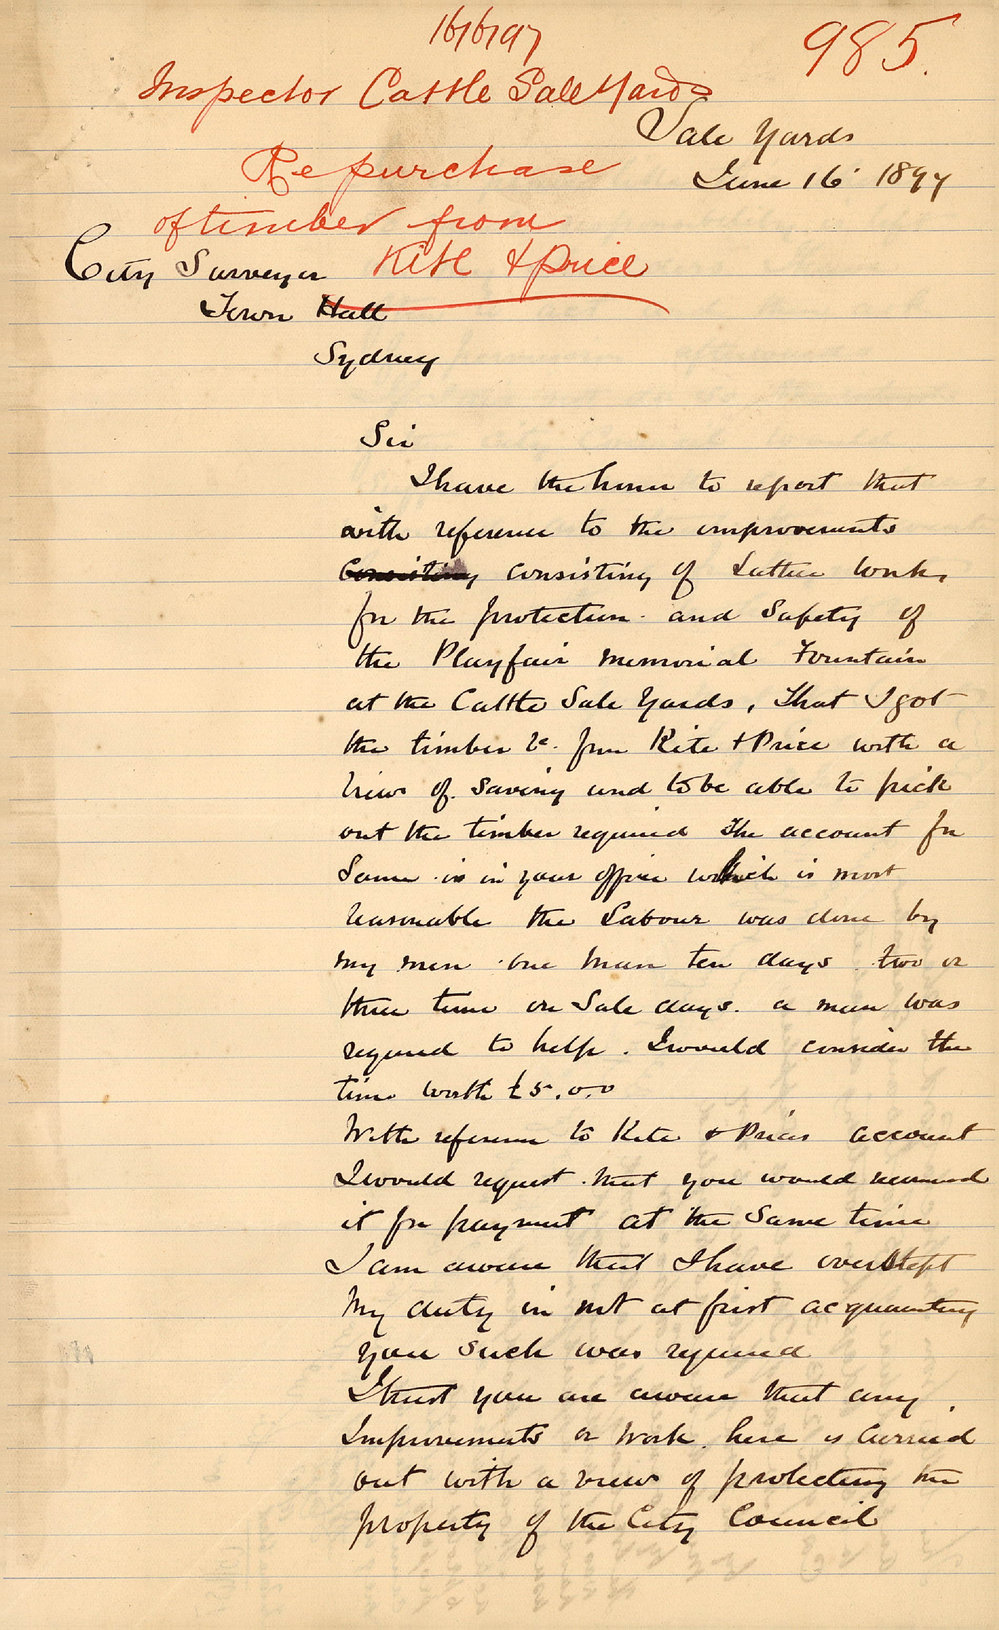 16/6/97
985.
Inspector Cattle Sale Yards
Sale Yards
June 16 1897
Re purchase
of timber from
Kite & Price
City Surveyor
Town Hall
Sydney
Sir
I have the honor to report that
with reference to the improvements
Consisting consisting of Lattice Work,
for the protection and Safety of
the Playfair Memorial Fountain
at the Cattle Sale Yards, That I got
the timber &c. from Kite & Price with a
view of saving and to be able to pick
out the timber required The account for
Same is in your office which is most
reasonable the Labour was done by
my men one man ten days two or
three time on Sale days. a man was
required to help. I would consider the
time worth £5.0.0
With reference to Kite & Prices account
I would request that you would
it for payment at the Same time
I am aware that I have overstept
My duty in not at first acquainting
you such was required
I trust you are aware that any
Improvements or Work here is Carried
out with a view of protecting the
property of the City Council